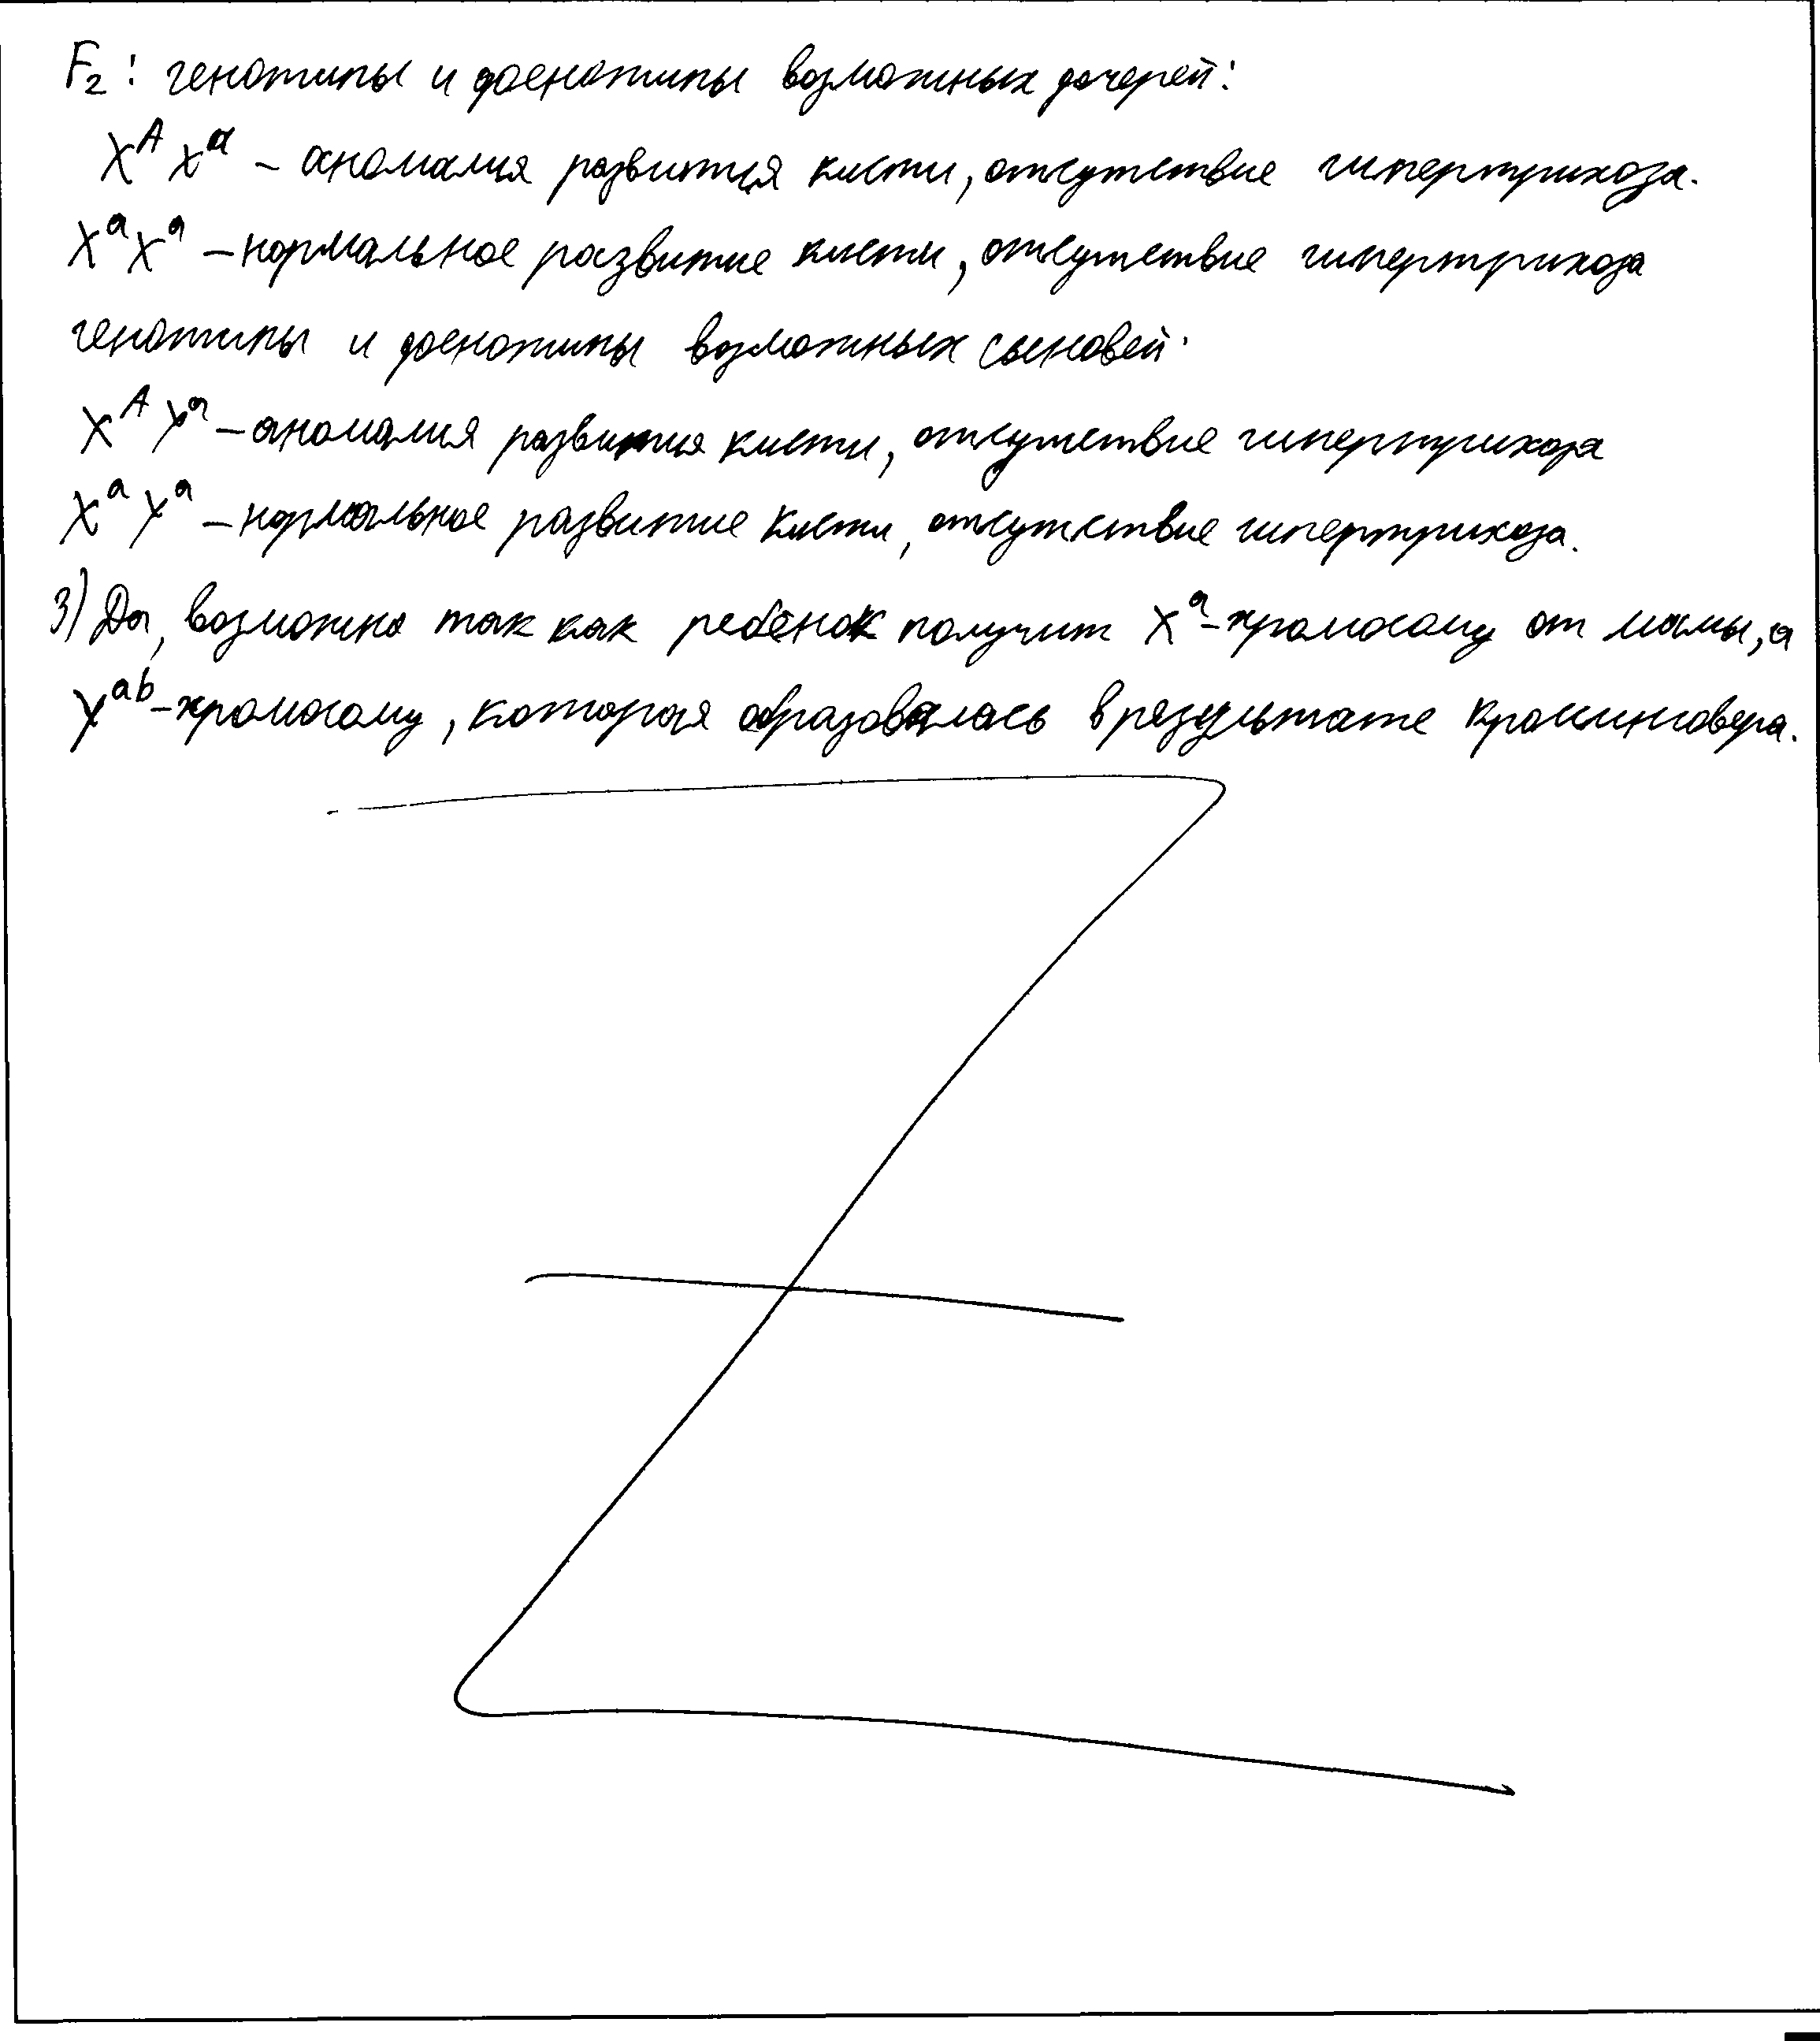 F₂: генотипы и фенотипы возможных дочерей:
Xᴬ Xᵃ – аномалия развития кисти, отсутствие гипертрихоза.
XᵃXᵃ – нормальное развитие кисти, отсутствие гипертрихоза
генотипы и фенотипы возможных сыновей:
Xᴬ Yᵃ – аномалия развития кисти, отсутствие гипертрихоза
Xᵃ Yᵃ – нормальное развитие кисти, отсутствие гипертрихоза.
3) Да, возможно так как ребёнок получит Xᵃ-хромосому от мамы, а
Yᵃᵇ-хромосому, которая образовалась в результате кроссинговера.